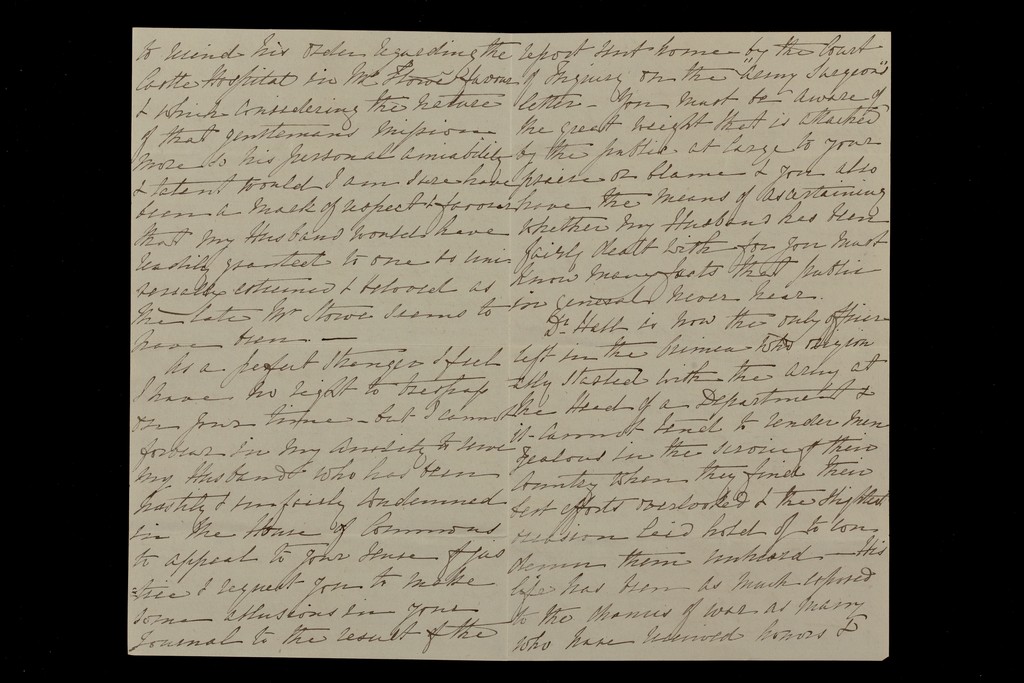 to rescind his order regarding the
Castle Hospital in Mr Stowe's favour
& which considering the nature
of that gentlemans mission
more so his personal amiability
& talent would I am sure have
been a mark of respect & favour
that my Husband would have
readily granted to one so uni
versally esteemed & beloved as
the late Mr Stowe seems to
have been. —
As a perfect stranger I feel
I have no right to trespass
on your time – but I cannot
forbear in my anxiety to serve
my Husband who has been
hastily & unfairly condemned
in the House of Commons
to appeal to your sense of jus
=tice I request you to make
some allusions in your
Journal to the result of the
report sent home by the Court
of Inquiry on the "Army Surgeon's"
letter – You must be aware of
the great weight that is attached
by the public at large to your
praise or blame & you also
have the means of ascertaining
whether my Husband has been
fairly dealt with for you must
know many facts that public
in general never hear.
Dr Hall is now the only officer
left in the Crimea who origin
ally started with the army at
the Head of a Department &
it cannot tend to render men
zealous in the service of their
Country when they find their
best efforts overlooked & the slightest
occasion laid hold of to con
demn them unheard – His
life has been as much exposed
to the chances of war as many
who have received honors &